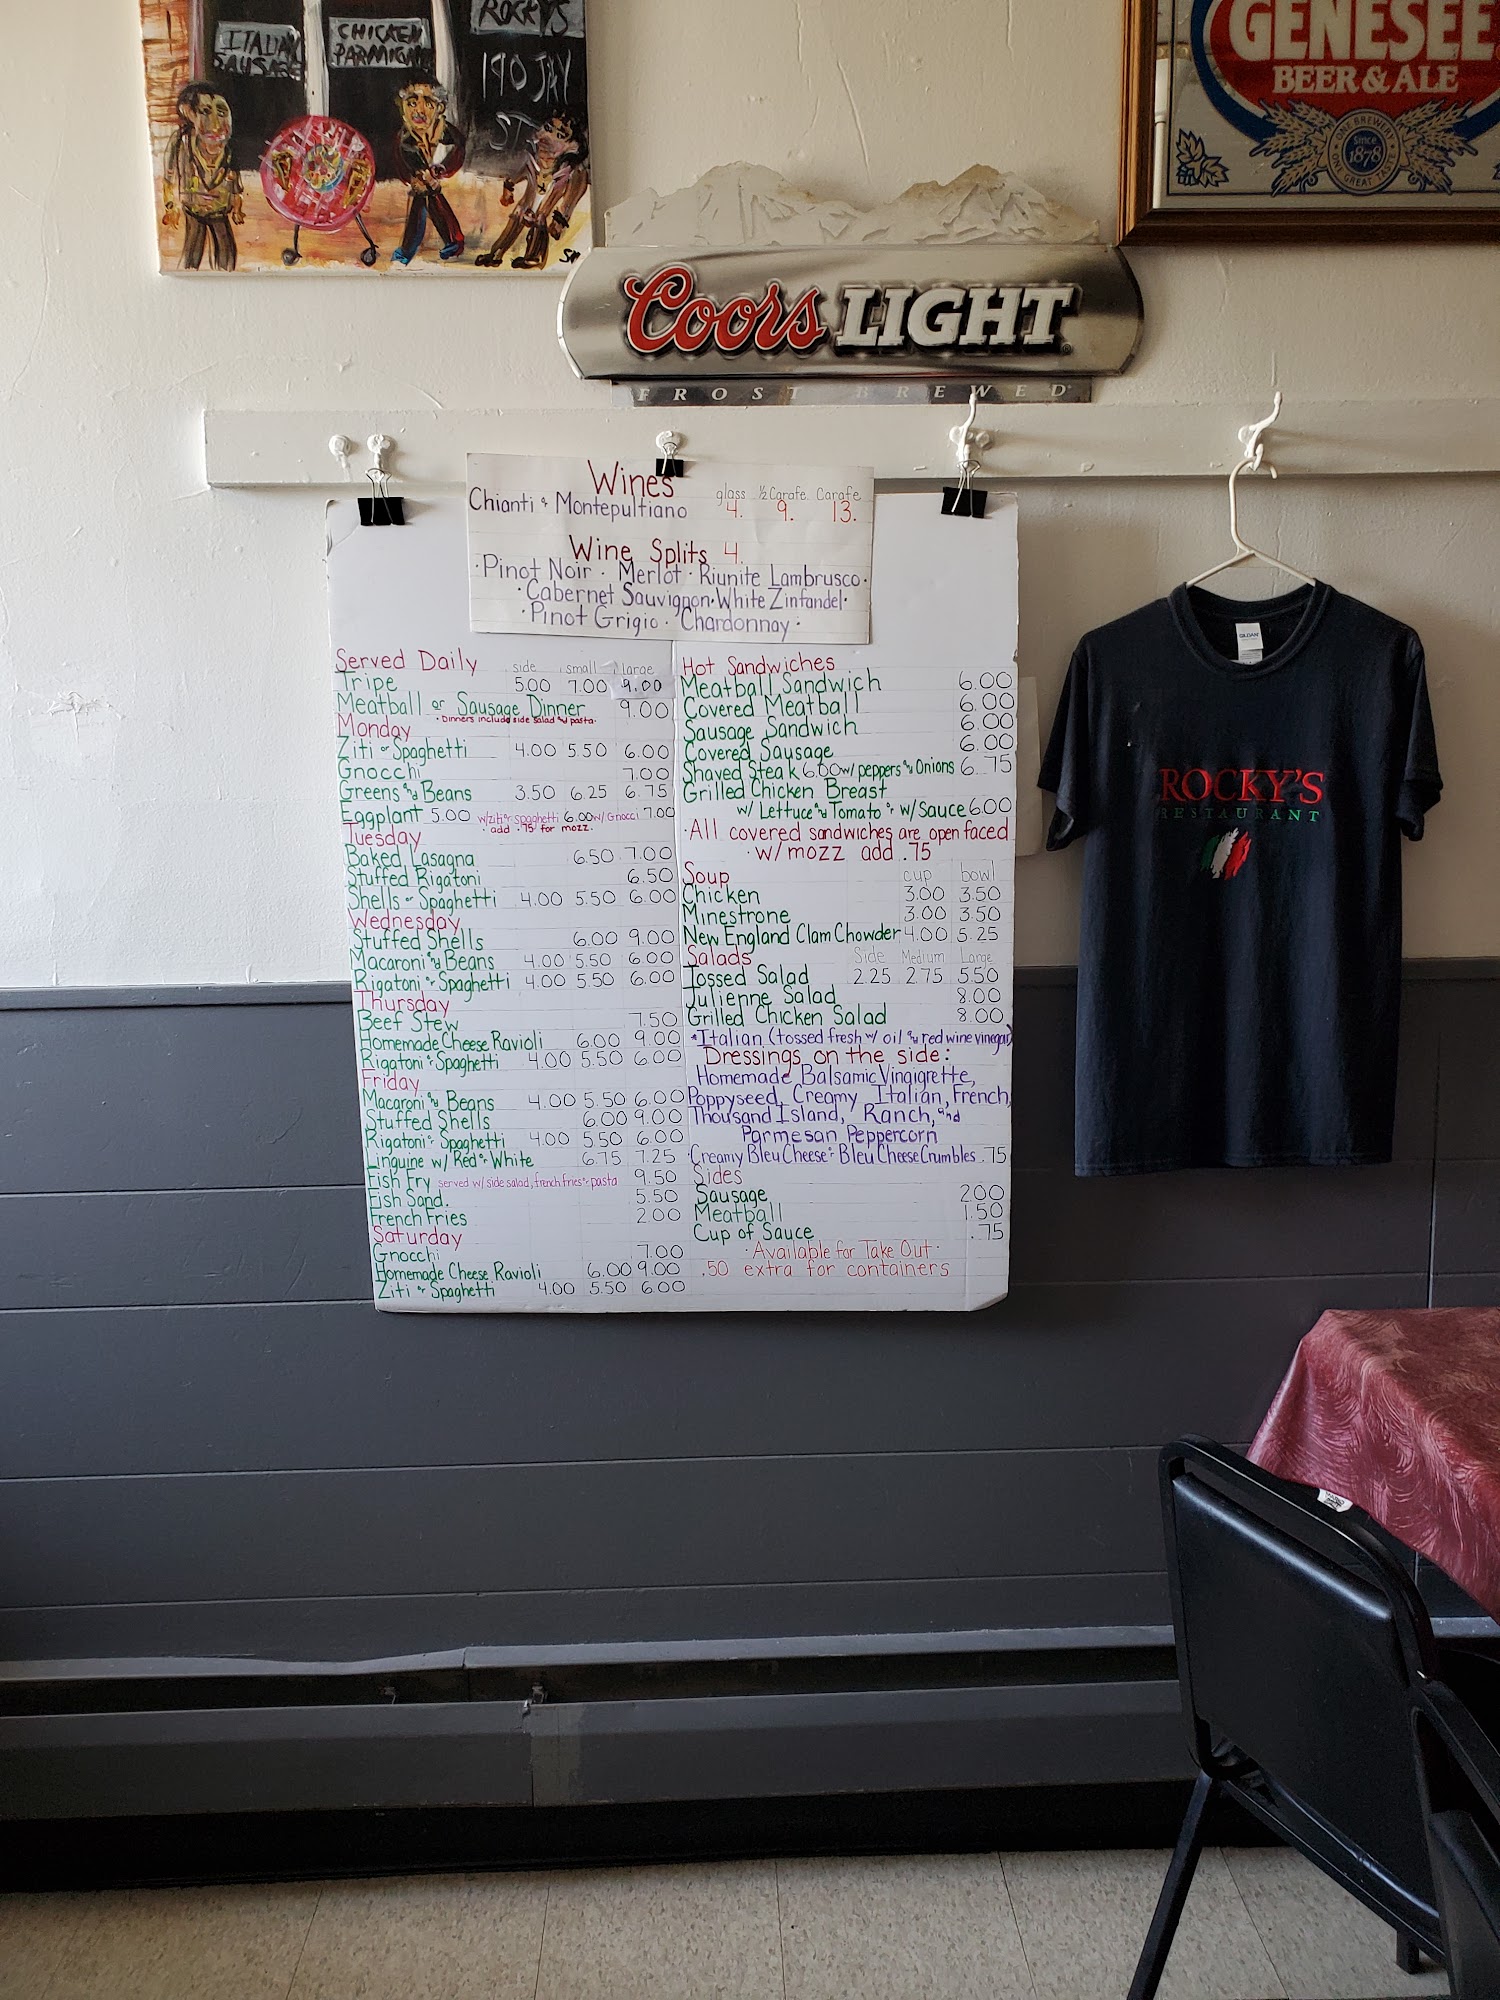 ITALIAN
SAUSAGE
CHICKEN
PARMIGIAN
ROCKYS
190 JAY
ST
GENESEE
BEER & ALE
ONE BREWERY
Since
1878
ONE GREAT TASTE
Coors LIGHT
FROST BREWED
Wines glass ½ Carafe Carafe
Chianti & Montepultiano 4. 9. 13.
Wine Splits 4.
·Pinot Noir · Merlot · Riunite Lambrusco·
·Cabernet Sauvignon·White Zinfandel·
·Pinot Grigio· Chardonnay ·
Served Daily side small large
Tripe 5.00 7.00 9.00
Meatball or Sausage Dinner 9.00
·Dinners include side salad and pasta·
Monday
Ziti or Spaghetti 4.00 5.50 6.00
Gnocchi 7.00
Greens and Beans 3.50 6.25 6.75
Eggplant 5.00 w/ziti or spaghetti 6.00 w/Gnocci 7.00
· add .75 for mozz.
Tuesday
Baked Lasagna 6.50 7.00
Stuffed Rigatoni 6.50
Shells or Spaghetti 4.00 5.50 6.00
Wednesday
Stuffed Shells 6.00 9.00
Macaroni and Beans 4.00 5.50 6.00
Rigatoni or Spaghetti 4.00 5.50 6.00
Thursday
Beef Stew 7.50
Homemade Cheese Ravioli 6.00 9.00
Rigatoni or Spaghetti 4.00 5.50 6.00
Friday
Macaroni and Beans 4.00 5.50 6.00
Stuffed Shells 6.00 9.00
Rigatoni or Spaghetti 4.00 5.50 6.00
Linguine w/ Red or White 6.75 7.25
Fish Fry served w/ side salad, french fries or pasta 9.50
Fish Sand. 5.50
French Fries 2.00
Saturday
Gnocchi 7.00
Homemade Cheese Ravioli 6.00 9.00
Ziti or Spaghetti 4.00 5.50 6.00
Hot Sandwiches
Meatball Sandwich 6.00
Covered Meatball 6.00
Sausage Sandwich 6.00
Covered Sausage 6.00
Shaved Steak 6.00 w/ peppers and Onions 6.75
Grilled Chicken Breast
w/ Lettuce and Tomato or w/ Sauce 6.00
·All covered sandwiches are open faced
·w/ mozz add .75
Soup cup bowl
Chicken 3.00 3.50
Minestrone 3.00 3.50
New England Clam Chowder 4.00 5.25
Salads Side Medium Large
Tossed Salad 2.25 2.75 5.50
Julienne Salad 8.00
Grilled Chicken Salad 8.00
*Italian (tossed fresh w/ oil and red wine vinegar)
Dressings on the side:
Homemade Balsamic Vinaigrette,
Poppyseed, Creamy Italian, French,
Thousand Island, Ranch, and
Parmesan Peppercorn
·Creamy Bleu Cheese or Bleu Cheese Crumbles .75
Sides
Sausage 2.00
Meatball 1.50
Cup of Sauce .75
·Available for Take Out·
.50 extra for containers
GILDAN
ROCKY'S
RESTAURANT